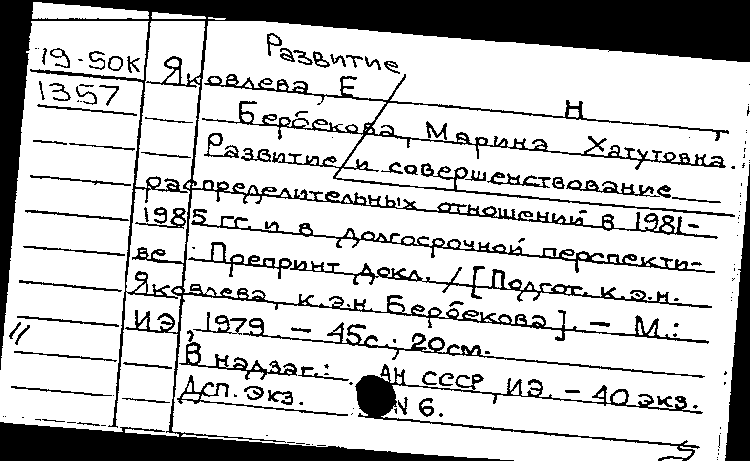 Развитие
19-50К
1357
Яковлева, Е Н
Бербекова, Марина Хатутовна.
Развитие и совершенствование
распределительных отношений в 1981-
1985 гг. и в долгосрочной перспекти-
ве : Препринт докл. / [Подгот. к.э.н.
Яковлева, к.э.н. Бербекова]. - М.:
ИЭ, 1979. - 45с.; 20см.
В надзаг.: АН СССР, ИЭ. - 40 экз.
Дсп. Экз. N 6.